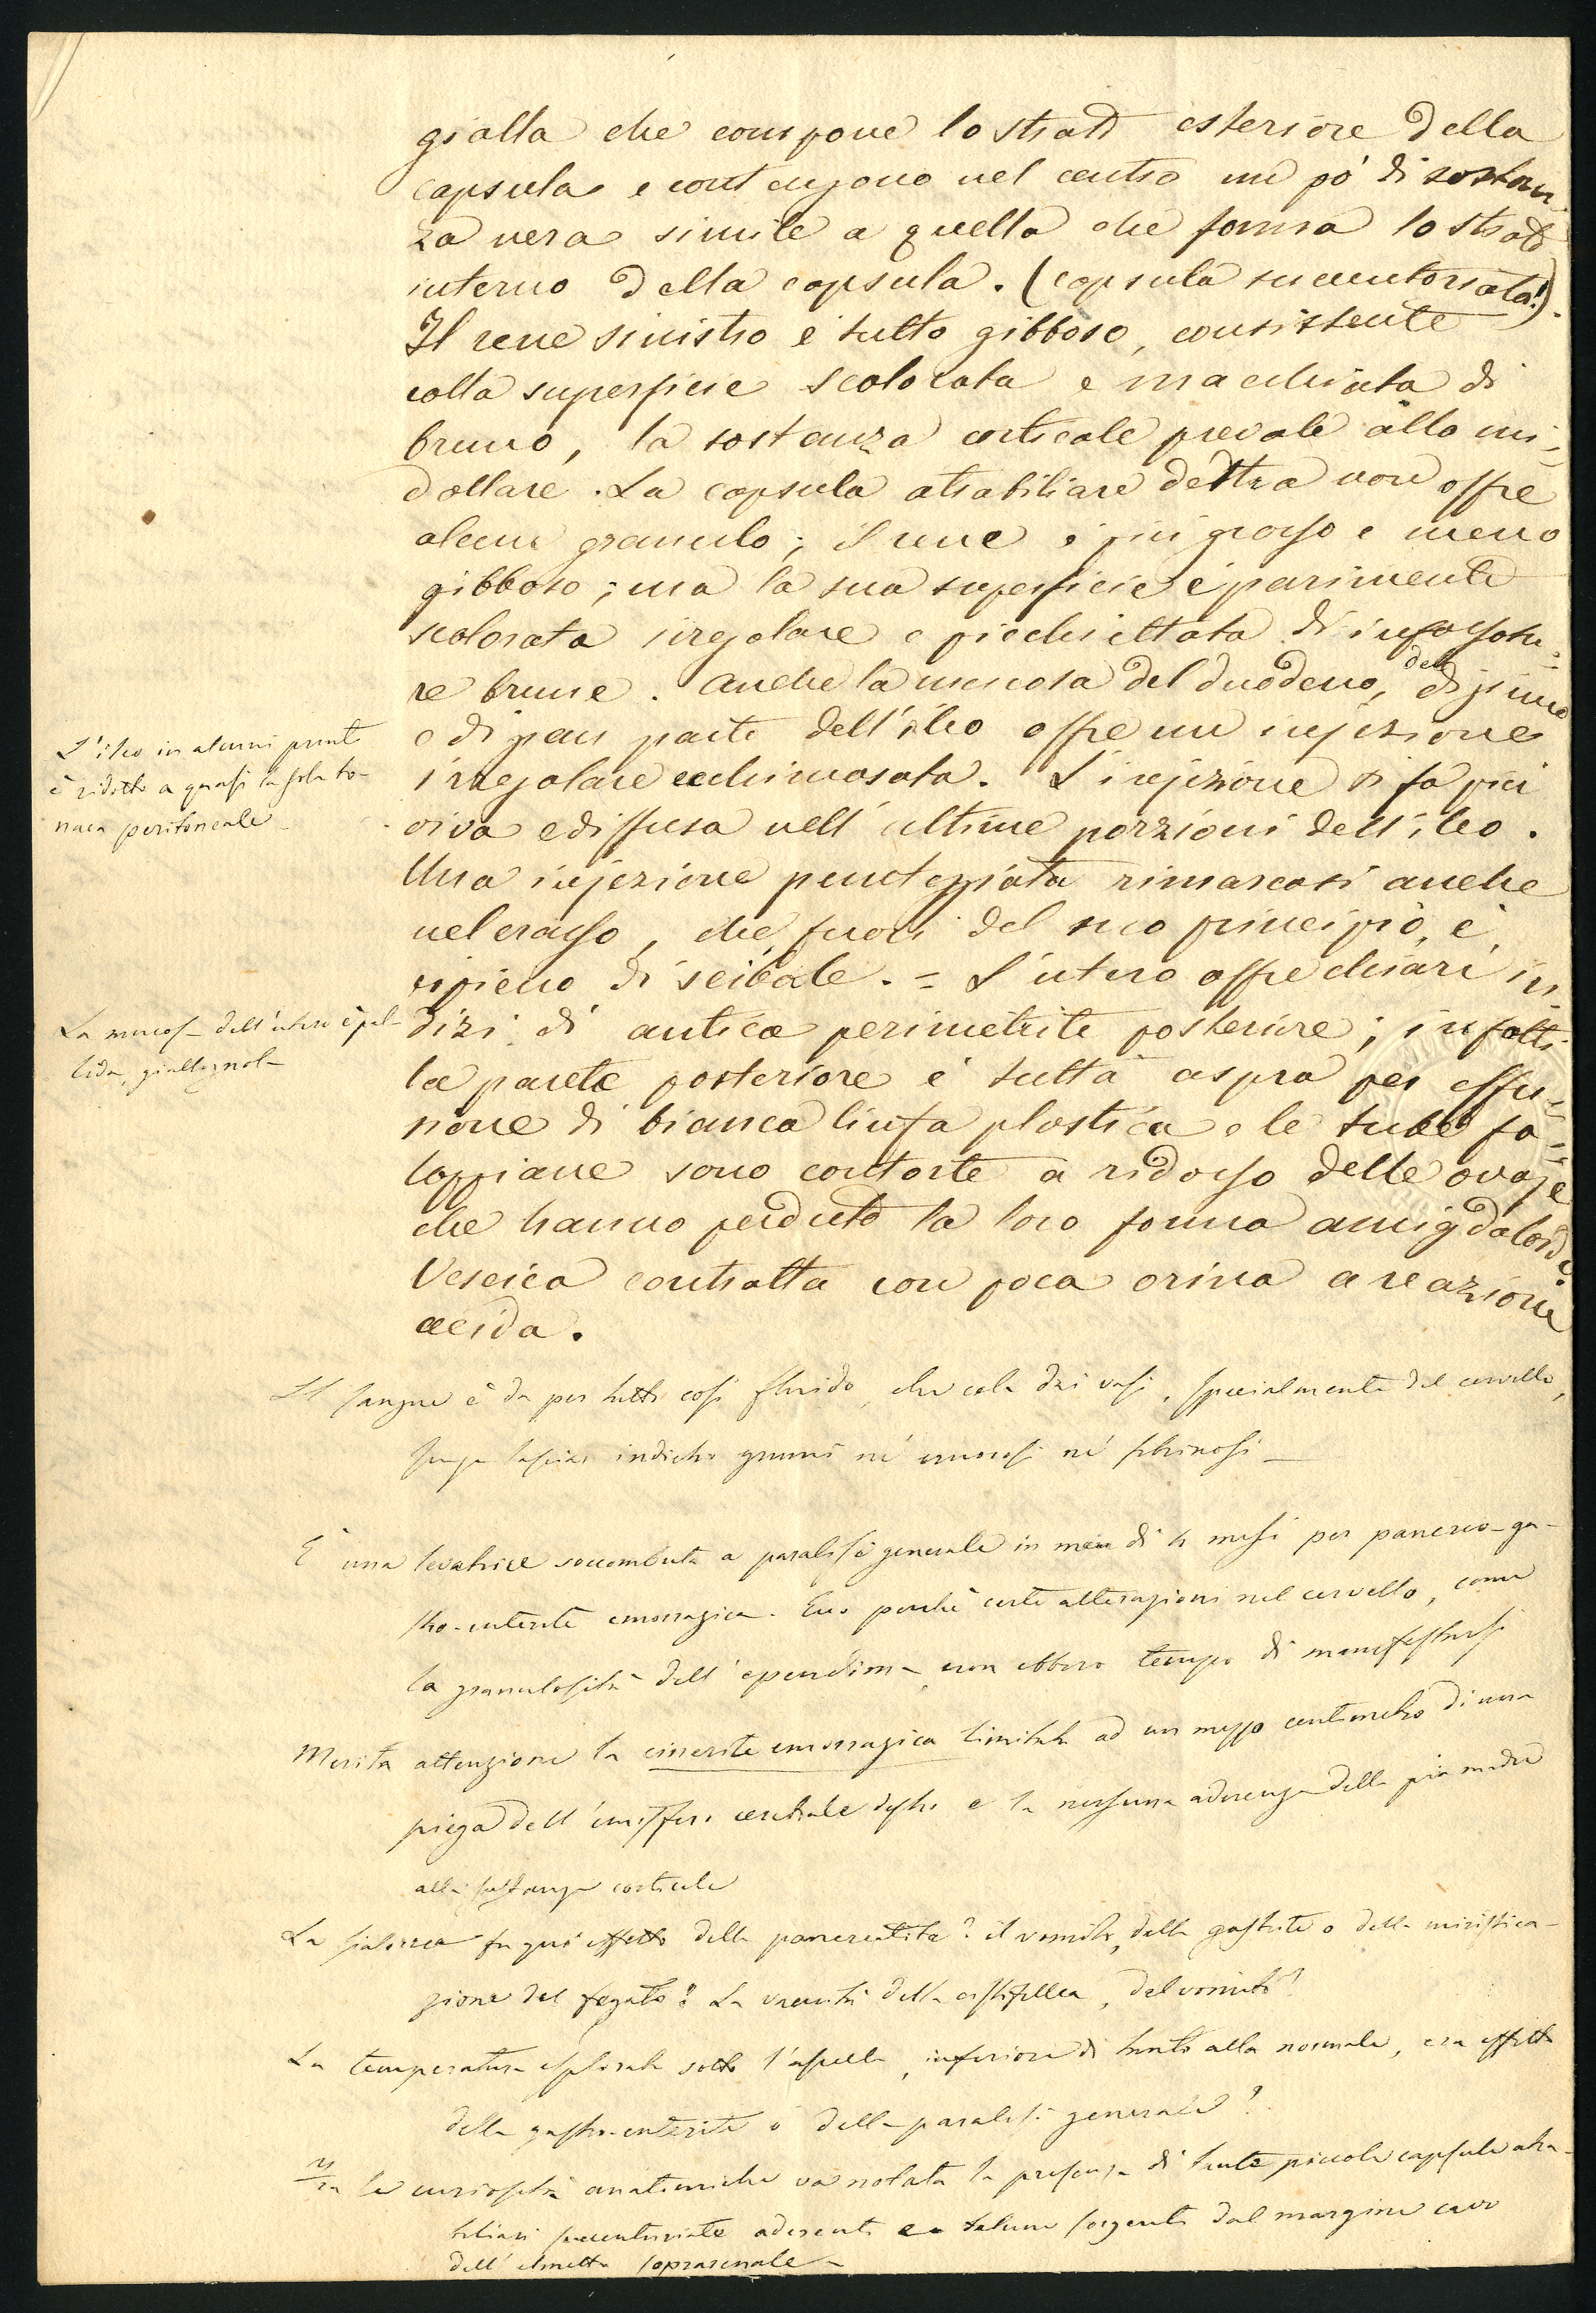 gialla che compone lo strato esteriore della
capsula e contengono nel centro un pò di sostan-
za nera simile a quella che forma lo strato
interno della capsula. (capsula succenturiata!).
Il rene sinistro è tutto gibboso, consistente
colla superficie scolorata e macchiata di
bruno, la sostanza corticale prevale alla mi-
dollare. La capsula atrabiliare destra non offre
alcun granulo; il rene è più grosso e meno
gibboso; ma la sua superficie è parimente
scolorata irregolare e picchiettata di infossatu-
re brune. Anche la mucosa del duodeno, del digiuno
e di gran parte dell'ileo offre un injezione
L'ileo in alcuni punti
è ridotto a quasi la sola to-
naca peritoneale
irregolare ecchimosata. L'injezione si fa più
viva e diffusa nell'ultime porzioni dell'ileo.
Una injezione punteggiata rimarcasi anche
nel crasso, che, fuori del suo principio, è
ripieno di scibale. = L'utero offre chiari in-
La mucosa dell'utero è pal-
lida, giallognola
dizi di antica perimetrite posteriore; infatti
la parete posteriore è tutta aspra per effu-
sione di bianca linfa plastica e le tube fa-
loppiane sono contorte a ridosso delle ovaje
che hanno perduto la loro forma amigdaloide.
Vescica contratta con poca orina a reazione
acida.
Il sangue è da per tutto così fluido, che cola dai vasi, specialmente del cervello,
senza lasciar indietro grumi nè cruorosi nè fibrinosi —
È una levatrice soccombuta a paralisi generale in men di 4 mesi per pancreo-ga-
stro-enterite emorragica. Ecco perchè certe alterazioni nel cervello, come
la granulosità dell'ependima, non ebbero tempo di manifestarsi
Merita attenzione la cinerite emorragica limitata ad un mezzo centimetro di una
piega dell'emisfero cerebrale destro e la nessuna aderenza della pia madre
alla sostanza corticale
La scialorrea fu qui effetto della pancreatite? il vomito, della gastrite o della miristica-
zione del fegato? La vacuità della cistifellea, del vomito?
La temperatura esplorata sotto l'ascella, inferiore di tanto alla normale, era effetto
della gastro-enterite o della paralisi generale?
Fra le curiosità anatomiche va notata la presenza di tante piccole capsule atra-
biliari succenturiate aderenti e talune sorgenti dal margine cavo
dell'elmetto soprarenale —